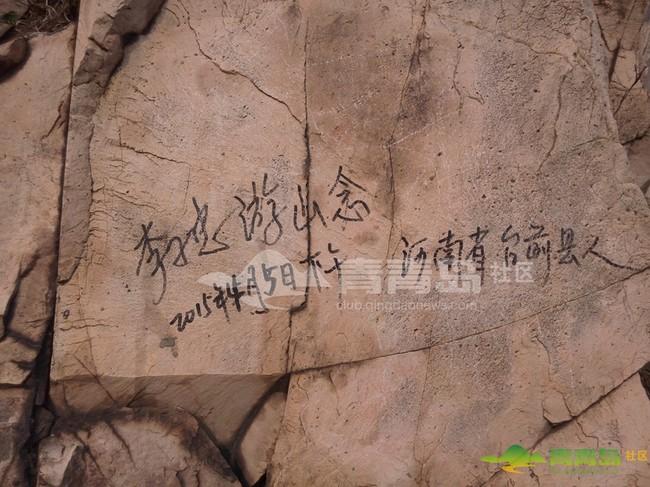 李杰游山念
河南省台前县人
2015年4月5日
青青岛社区
club.qingdaonews.com
青青岛社区